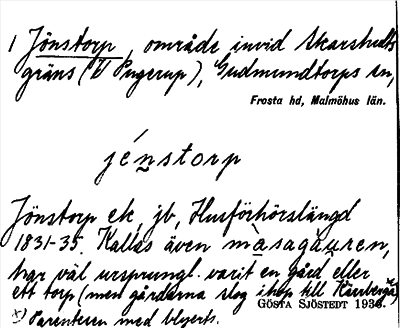 1 Jönstorp, område invid Skarshults
gräns (T Pugerup), Gudmundtorps sn,
Frosta hd, Malmöhus län.
jénstorp
Jönstorp ek, jb, Husförhörslängd
1831-35. Kallas även màsagǻuren,
har väl ursprungl. varit en gård eller
ett torp (men gårdarna slog ihop till
GÖSTA SJÖSTEDT 1936.
x) Parentesen med blyerts.